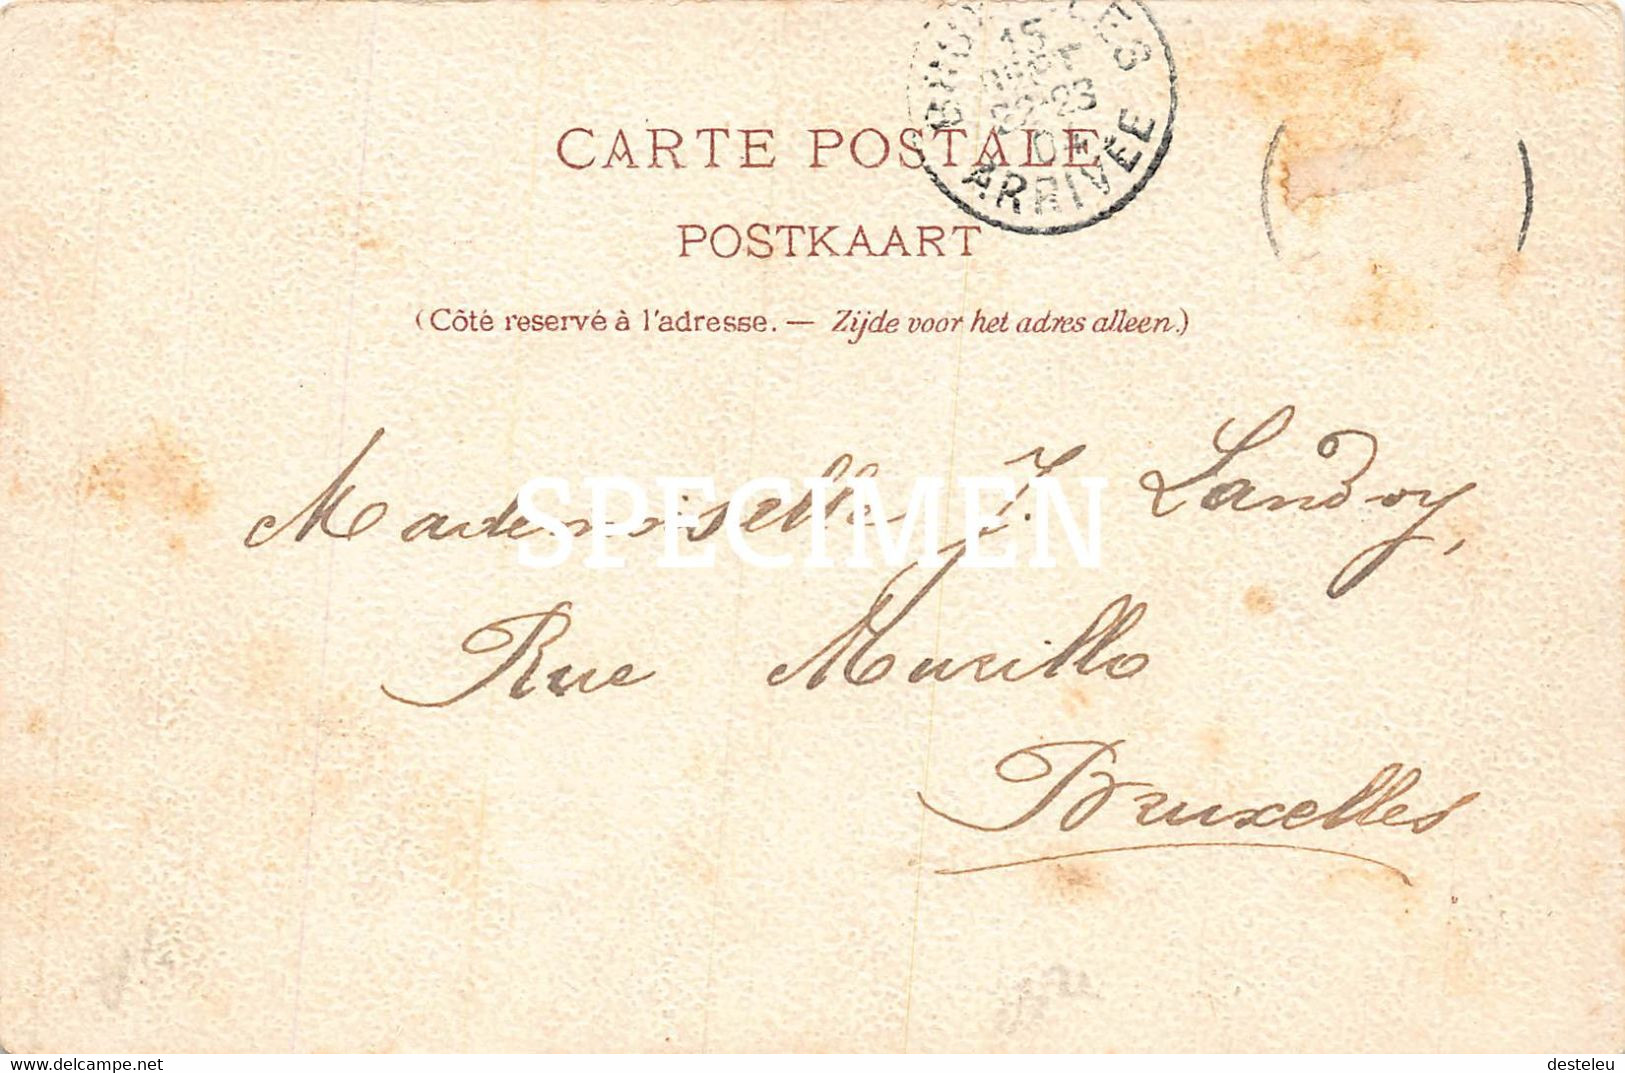 BRUXELLES
15
22-23
ARRIVÉE
CARTE POSTALE
POSTKAART
(Côté reservé à l'adresse. — Zijde voor het adres alleen.)
Mademoiselle J. Landoy,
SPECIMEN
Rue Murillo
Bruxelles
www.delcampe.net
desteleu